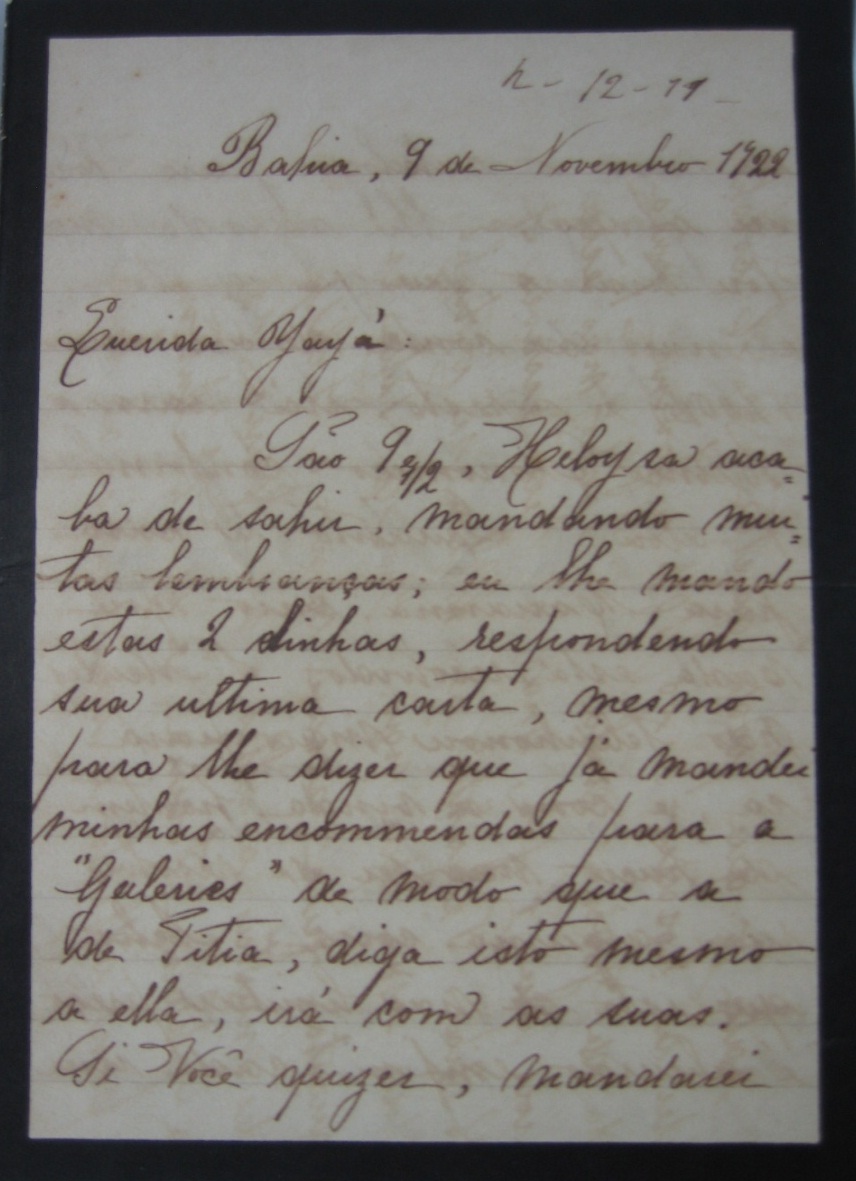 - 12 - 11 -
Bahia, 9 de Novembro 1922
Querida Yayá:
São 9 e 1/2, Heloysa aca-
ba de sahir, mandando mui-
tas lembranças; eu lhe mando
estas 2 linhas, respondendo
sua ultima carta, mesmo
para lhe dizer que já mandei
minhas encommendas para a
"Galeries" de modo que a
de Titia, diga isto mesmo
a ella, irá com as suas.
Si Você quizer, mandarei